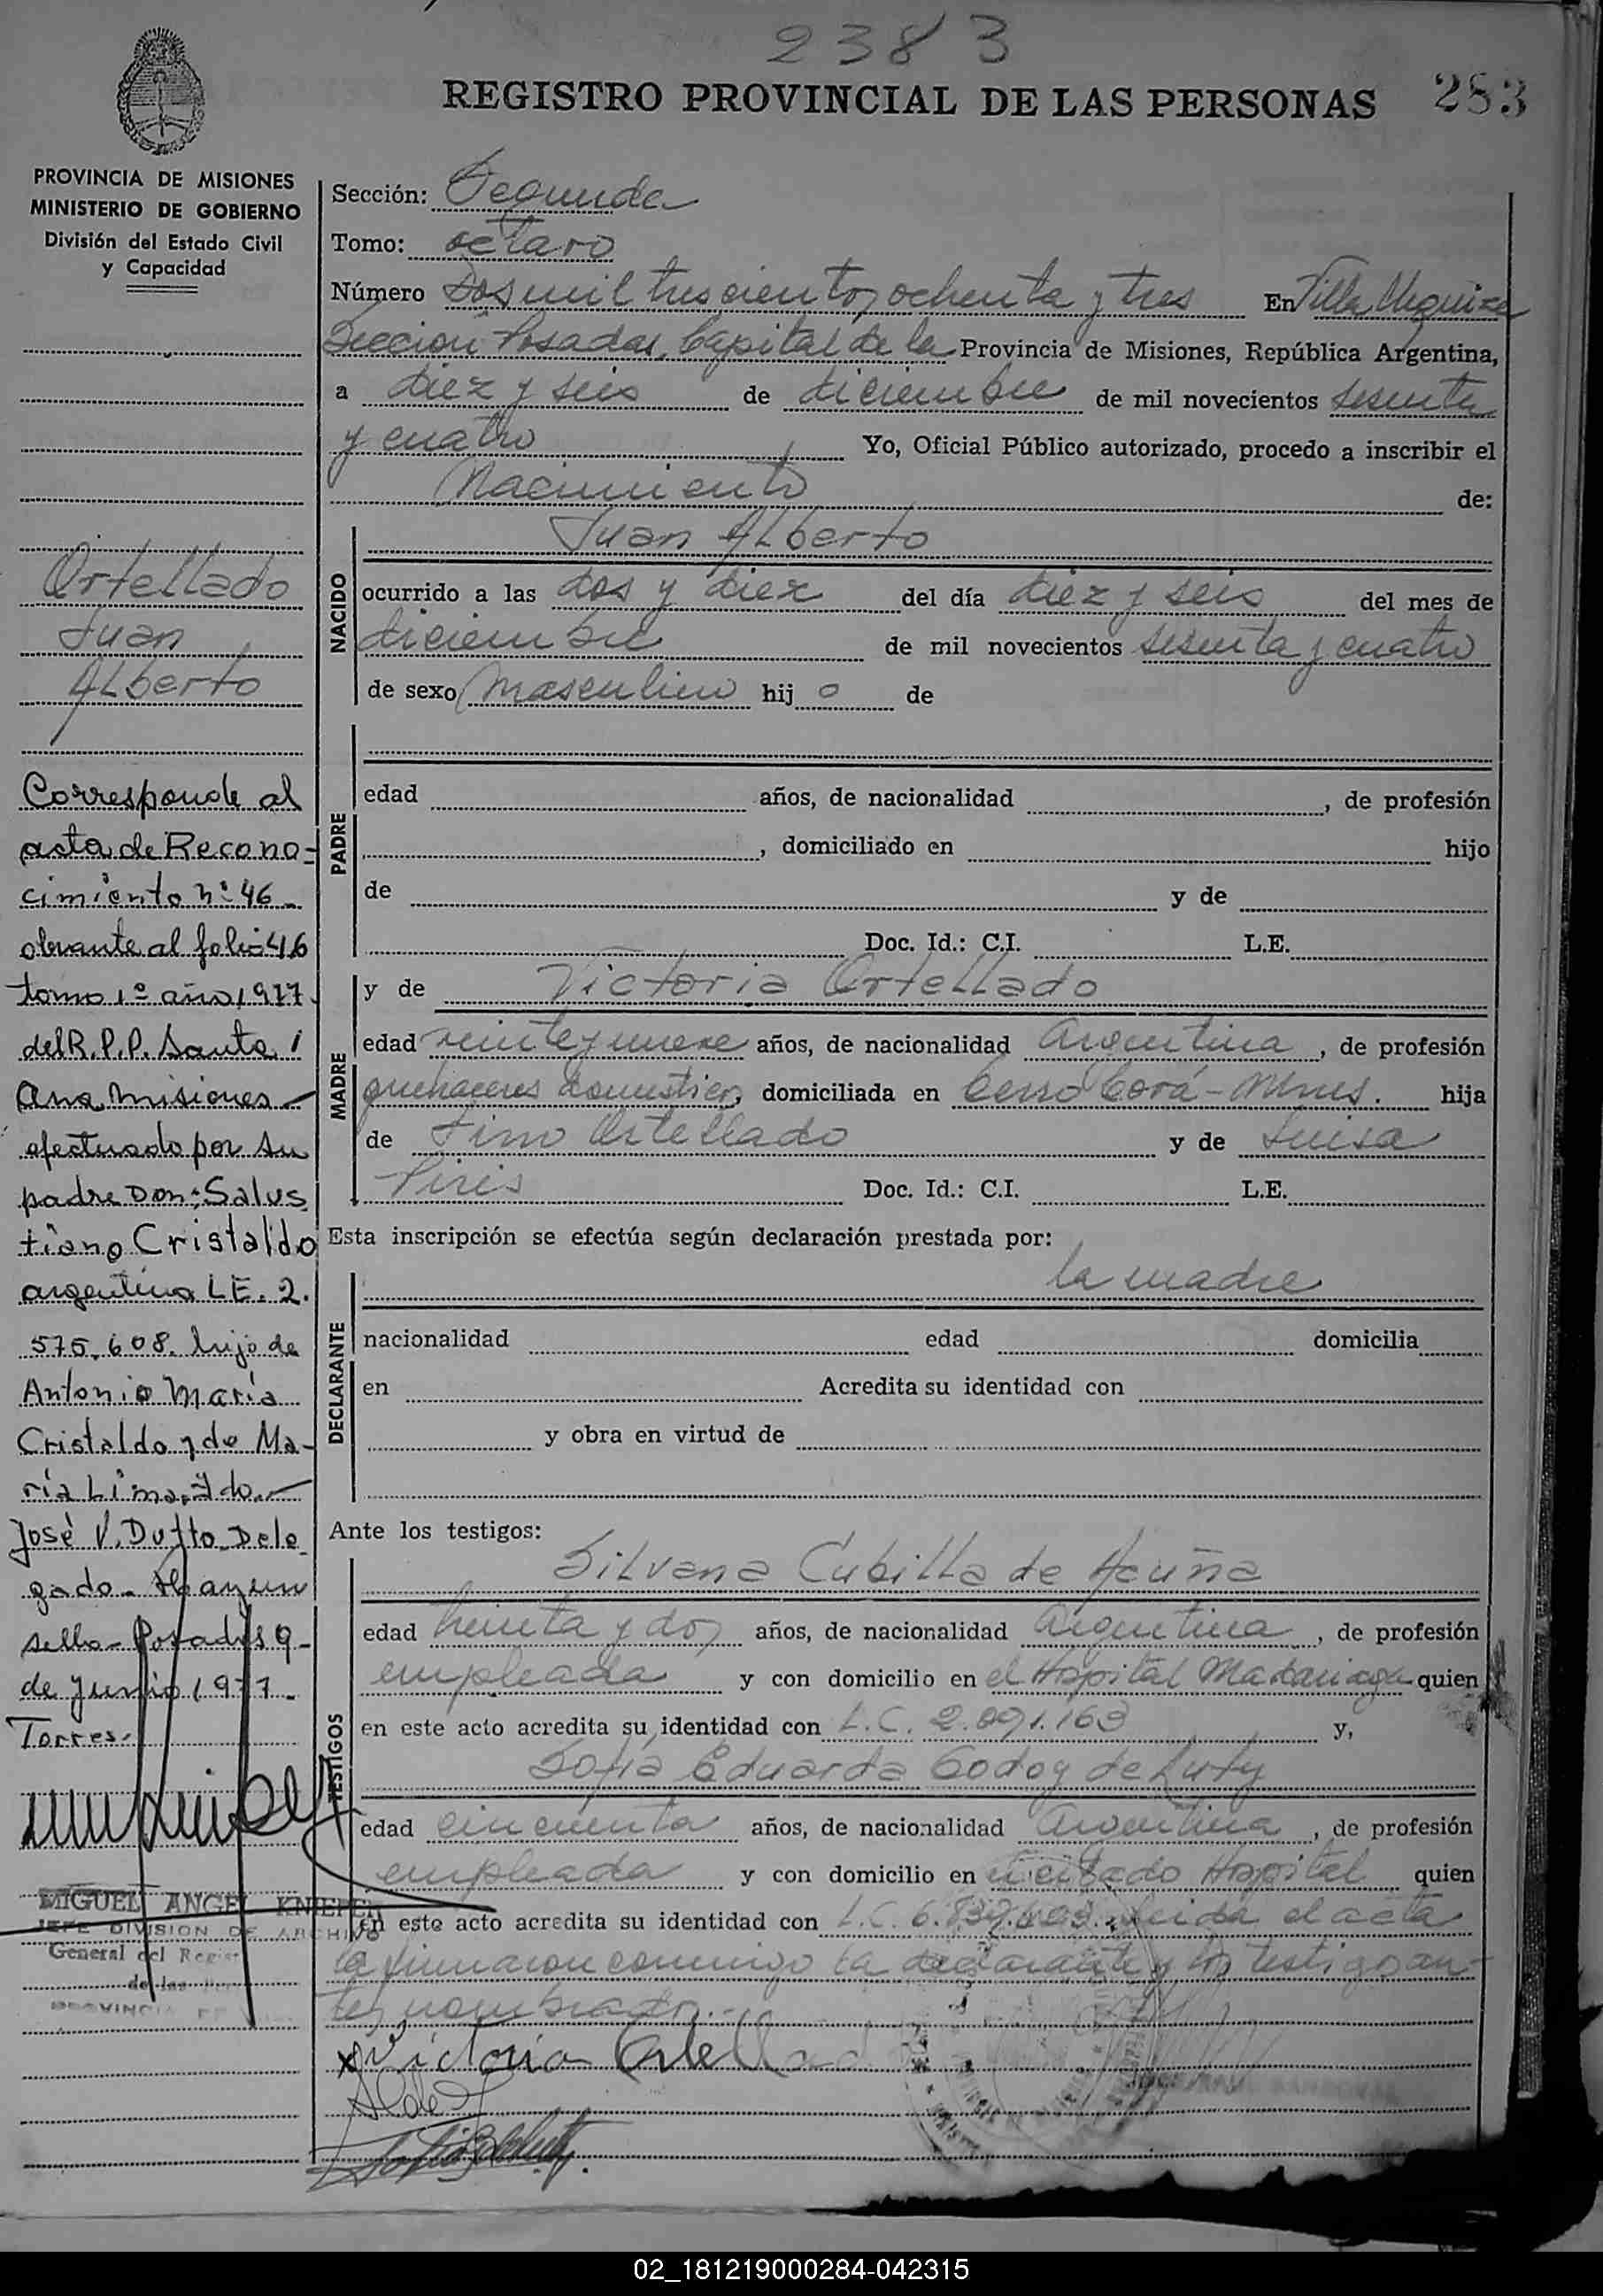 2383
REGISTRO PROVINCIAL DE LAS PERSONAS
283
PROVINCIA DE MISIONES
MINISTERIO DE GOBIERNO
División del Estado Civil
y Capacidad
Ortellado
Juan
Alberto
Corresponde al
acta de Recono-
cimiento nº 46
obrante al folio 46
tomo 1º año 1977
del R.P.P. Santa
Ana Misiones
efectuado por su
padre Don: Salus
tiano Cristaldo
argentino L.E. 2.
575.608. hijo de
Antonio María
Cristaldo y de Ma-
ría Lima. Fdo.
José V. Dutto Dele
gado. Hay un
sello - Posadas 9
de Junio 1977
Torres.
MIGUEL ANGEL KNIEPER
JEFE DIVISION DE ARCHIVO
General del Regis
de las Per
PROVINCIA DE
Sección: Segunda
Tomo: octavo
Número Dos mil trescientos ochenta y tres En Villa Urquiza
Sección Posadas, Capital de la Provincia de Misiones, República Argentina,
a diez y seis de diciembre de mil novecientos sesenta
y cuatro Yo, Oficial Público autorizado, procedo a inscribir el
Nacimiento de:
NACIDO
Juan Alberto
ocurrido a las dos y diez del día diez y seis del mes de
diciembre de mil novecientos sesenta y cuatro
de sexo masculino hijo de
PADRE
edad años, de nacionalidad , de profesión
, domiciliado en hijo
de y de
Doc. Id.: C.I. L.E.
MADRE
y de Victoria Ortellado
edad veinte y nueve años, de nacionalidad argentina, de profesión
quehaceres domésticos, domiciliada en Cerro Corá - Mnes. hija
de Fino Ortellado y de Luisa
Piris Doc. Id.: C.I. L.E.
Esta inscripción se efectúa según declaración prestada por:
DECLARANTE
la madre
nacionalidad edad domicilia
en Acredita su identidad con
y obra en virtud de
Ante los testigos:
TESTIGOS
Silvana Cubilla de Acuña
edad treinta y dos años, de nacionalidad argentina, de profesión
empleada y con domicilio en el Hospital Madariaga quien
en este acto acredita su identidad con L.C. 2.091.163 y,
Sofia Eduarda Godoy de Luty
edad cincuenta años, de nacionalidad argentina, de profesión
empleada y con domicilio en el citado Hospital quien
en este acto acredita su identidad con L.C. leida el acta
la firmaron conmigo la declarante y los testigos an-
tes nombrados.-
x Victoria Ortellado
02_181219000284-042315